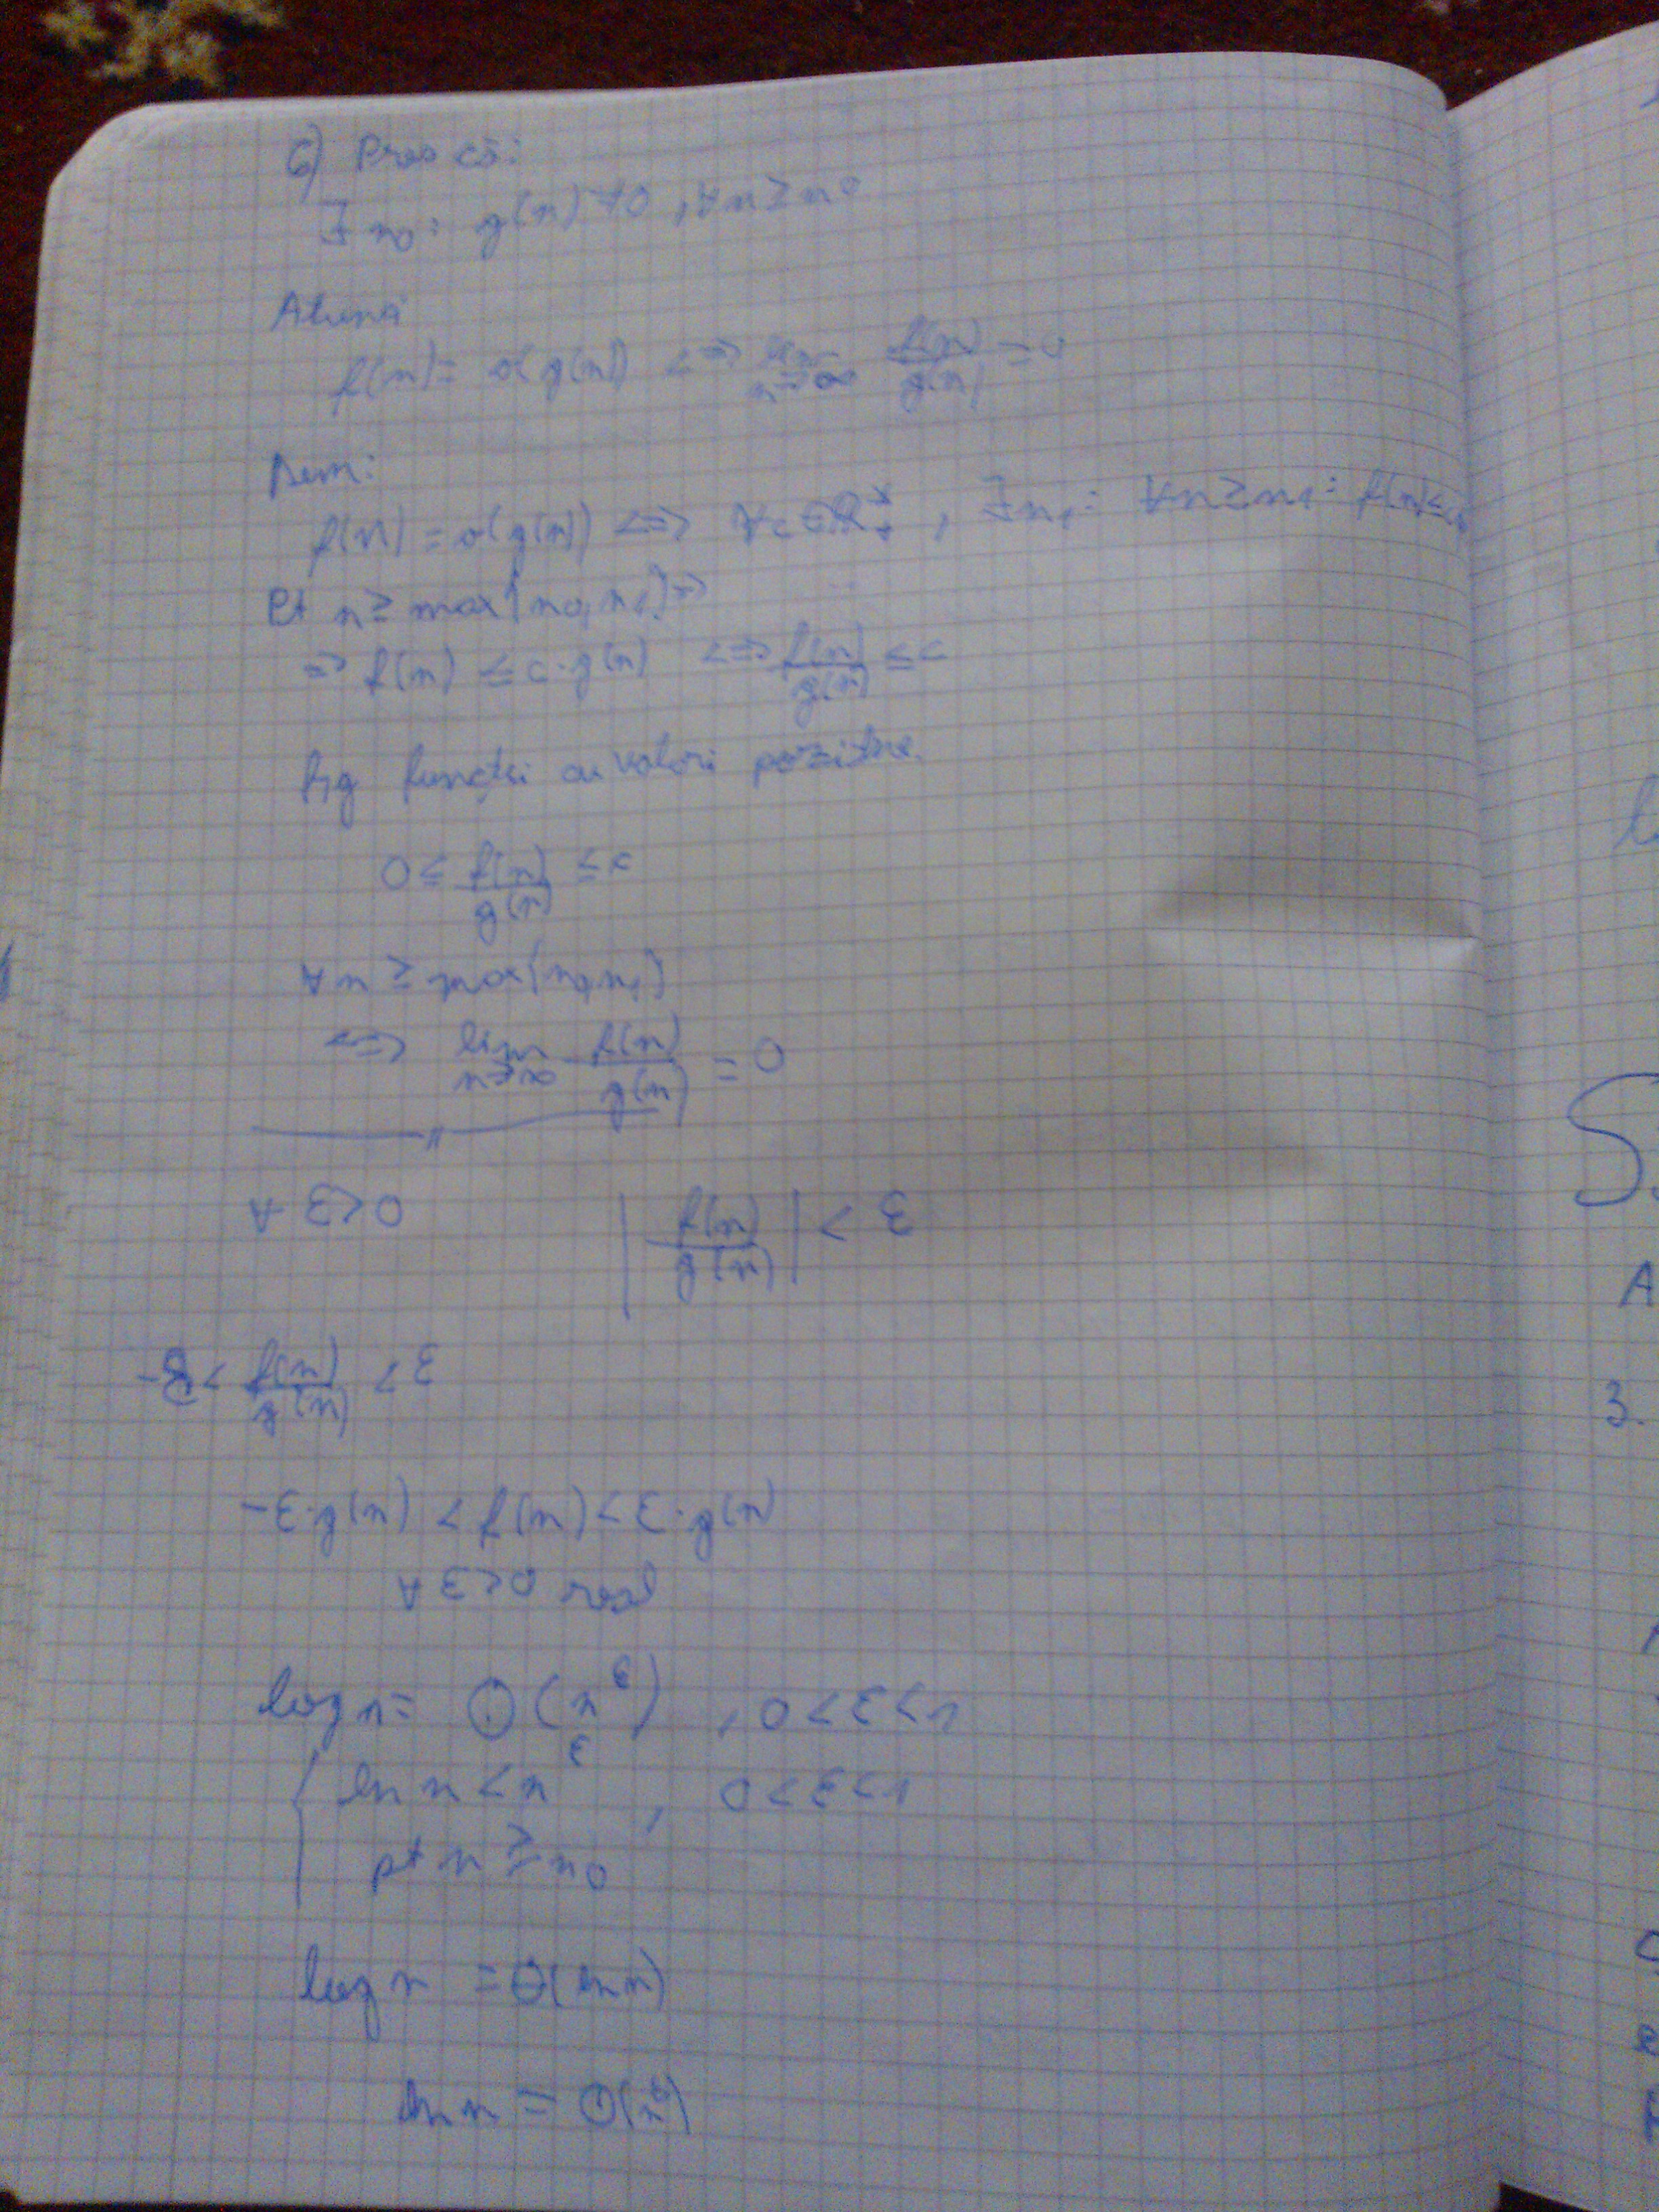 6) Pres că:
∃ n₀: g(n) ≠ 0, ∀ n ≥ n₀
Atunci
f(n) = o(g(n)) <=> lim n→∞ f(n)/g(n) = 0
Dem:
f(n) = o(g(n)) <=> ∀ c ∈ ℝ*₊, ∃ n₁: ∀ n ≥ n₁: f(n) ≤ c
Pt n ≥ max{n₀, n₁} =>
=> f(n) ≤ c·g(n) <=> f(n)/g(n) ≤ c
f, g funcții cu valori pozitive.
0 ≤ f(n)/g(n) ≤ c
∀ n ≥ max{n₀, n₁}
<=> lim n→∞ f(n)/g(n) = 0
∀ ε > 0 |f(n)/g(n)| < ε
-ε < f(n)/g(n) < ε
-ε·g(n) < f(n) < ε·g(n)
∀ ε > 0 real
log n = O(n^ε), 0 < ε < 1
ln n < n^ε, 0 < ε < 1
pt n ≥ n₀
log n = Θ(ln n)
ln n = O(n^ε)
S
A
3.